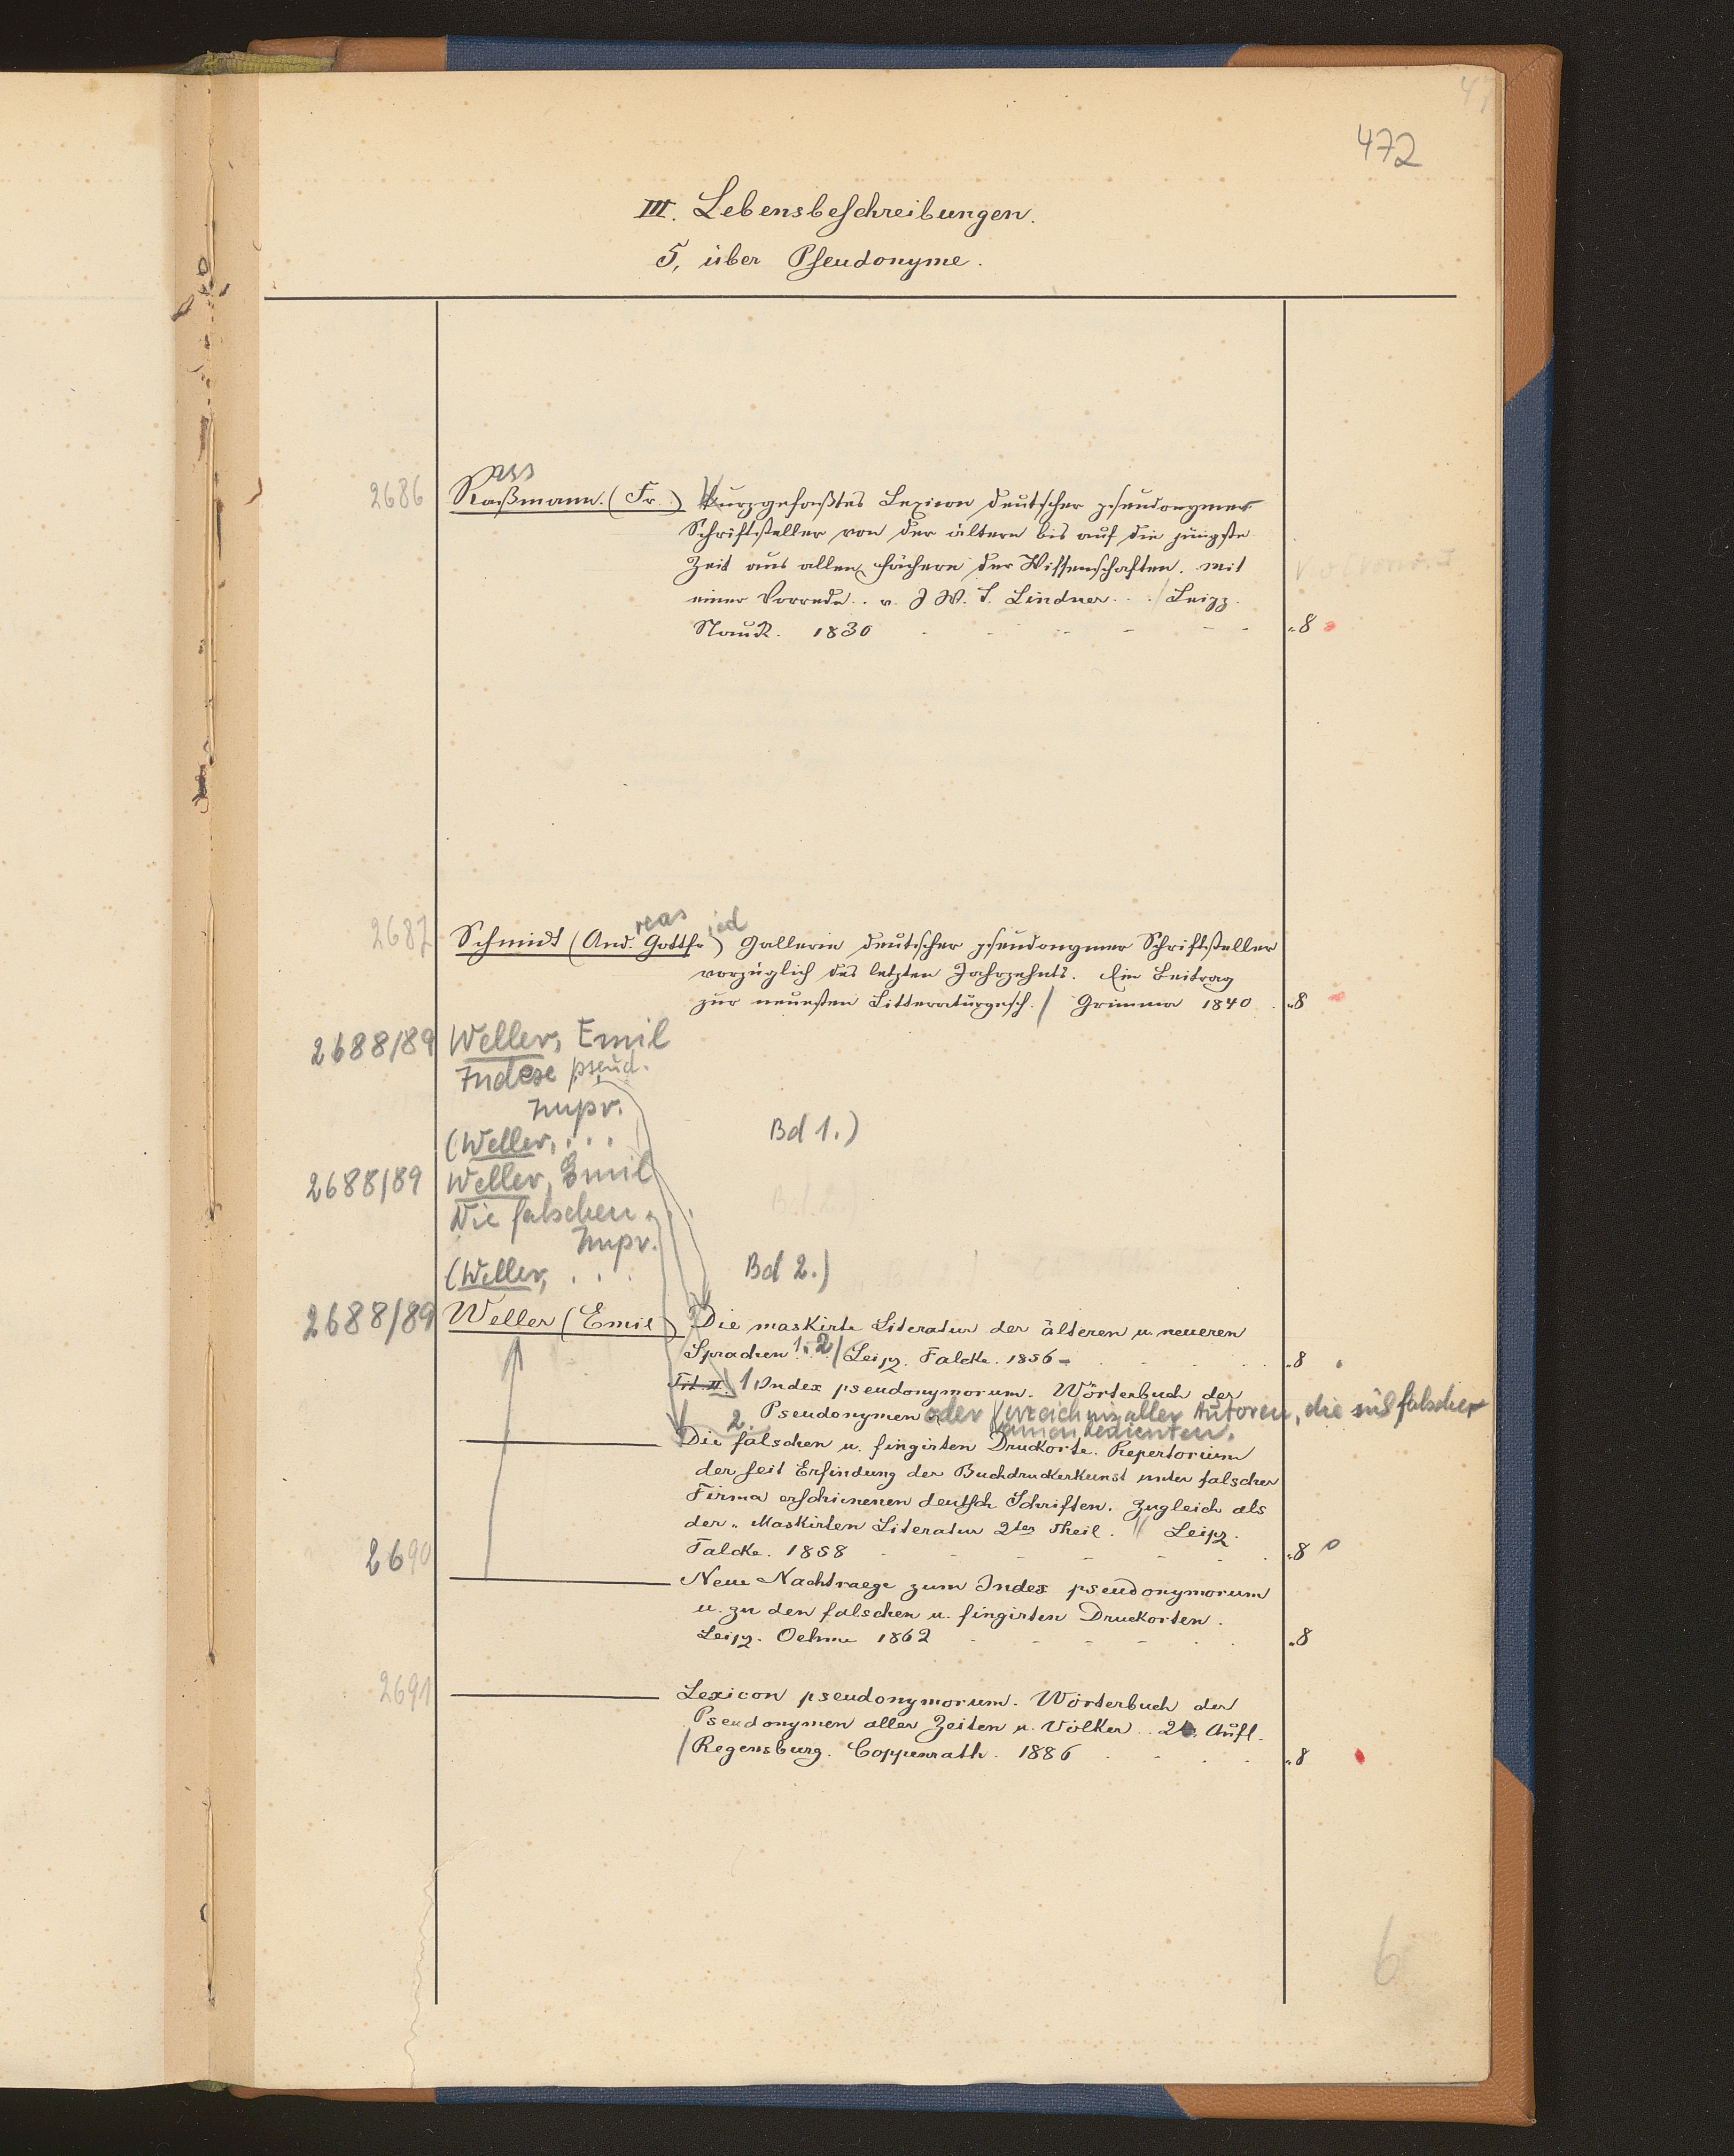 472
III. Lebensbeschreibungen.
5, über Pseudonyme.
ass
2686 Raßmann. (Fr.) Kurzgefaßtes Lexicon deutscher pseudonymer
Schriftsteller von der ältern bis auf die jüngste
Zeit aus allen Fächern der Wissenschaften. mit
einer Vorrede .. v. J. W. S. Lindner ... / Leipz.
Nauck. 1830 - - - - - - "8
reas ied
2687 Schmidt (And. Gottfr) Gallerie deutscher pseudonymer Schriftsteller
vorzüglich des letzten Jahrzehnts. Ein Beitrag
zur neuesten Litteraturgesch. / Grimma 1840 . "8
2688/89 Weller, Emil
Index pseud.
Impr.
(Weller, . . . Bd 1.)
2688/89 Weller, Emil
Die falschen . . .
Impr.
(Weller, . . . Bd 2.)
2688/89 Weller (Emil) Die maskirte Literatur der älteren u. neueren
Sprachen 1. 2 / Leipz. Falcke. 1856 - "8
Tit. II. 1 Index pseudonymorum. Wörterbuch der
Pseudonymen oder Verzeichnis aller Autoren, die sich falscher
2. Namen bedienten.
Die falschen u. fingirten Druckorte. Repertorium
der seit Erfindung der Buchdruckerkunst unter falscher
Firma erschienenen deutsch Schriften. Zugleich als
der "Maskirten Literatur 2ter Theil. // Leipz.
Falcke. 1858 - - - - - "8
2690 Neue Nachtraege zum Index pseudonymorum
u. zu den falschen u. fingirten Druckorten.
Leipz. Oehme 1862 - - - - "8
2691 Lexicon pseudonymorum. Wörterbuch der
Pseudonymen aller Zeiten u. Völker .. 2. Aufl.
/ Regensburg. Coppenrath. 1886 . - . . "8
6